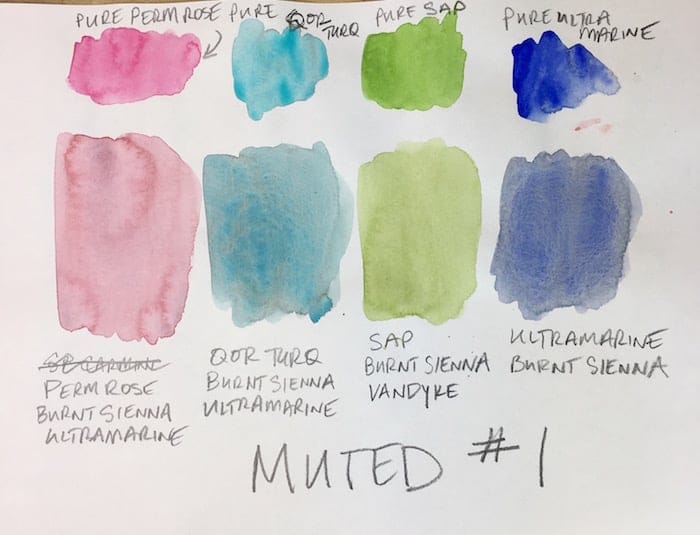 PURE PERM ROSE
PURE QOR
TURQ
PURE SAP
PURE ULTRA
MARINE
PERM ROSE
BURNT SIENNA
ULTRAMARINE
QOR TURQ
BURNT SIENNA
ULTRAMARINE
SAP
BURNT SIENNA
VANDYKE
ULTRAMARINE
BURNT SIENNA
MUTED #1